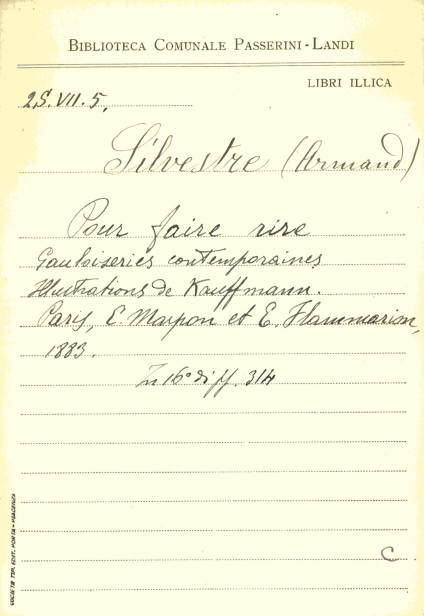 BIBLIOTECA COMUNALE PASSERINI - LANDI
LIBRI ILLICA
2S. VII. 5,
Silvestre (Armand)
Pour faire rire
Gauloiseries contemporaines
Illustrations de Kauffmann.
Paris, E. Marpon et E. Flammarion,
1883.
In 16° di ff. 314
C
SOCIETÀ TIP. EDIT. PORTA - PIACENZA